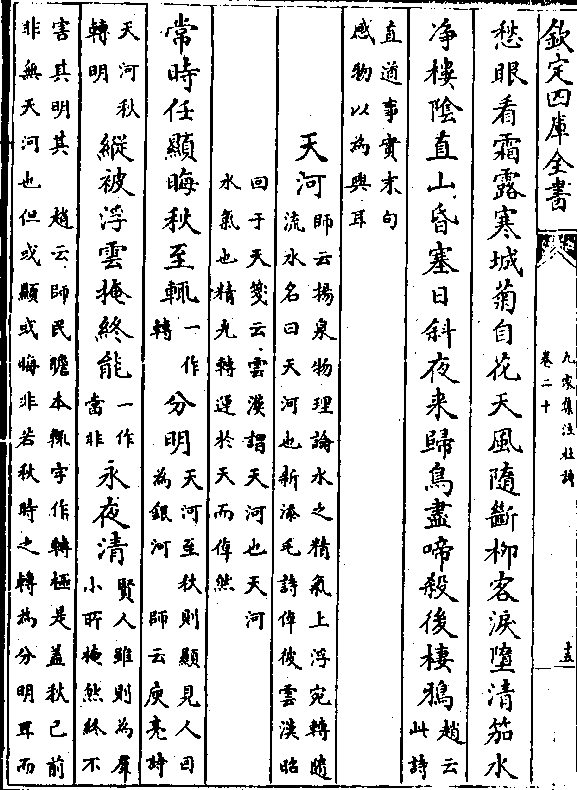 欽定四庫全書
九家集注杜詩
卷二十
十五
愁眼看霜露寒城菊自花天風隨斷柳客淚墮清笳水
净樓陰直山昏塞日斜夜来歸鳥盡啼殺後棲鴉
趙云
此詩
直道事實末句
感物以為興耳
天河
師云楊泉物理論水之精氣上浮宛轉隨
流水名曰天河也新添毛詩倬彼雲漢昭
回于天箋云雲漢謂天河也天河
水氣也精光轉運於天而倬然
常時任顯晦秋至輒
一作
轉
分明
天河至秋則顯見人目
為銀河 師云庾亮詩
天河秋
轉明
縱被浮雲掩終能
一作
當非
永夜清
賢人雖則為羣
小所掩然終不
害其明其 趙云師民瞻本輒字作轉極是蓋秋已前
非無天河也但或顯或晦非若秋時之轉為分明耳而